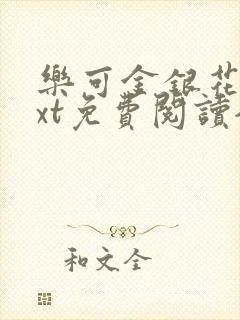 樂可金銀花
xt免費閱讀
和文全